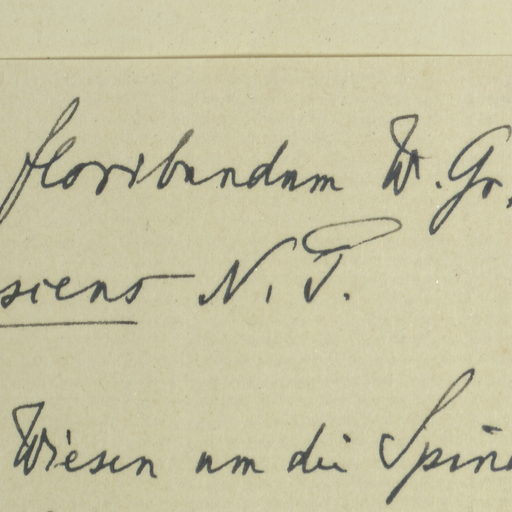 floribundum W. Gr.
siens N. P.
Wiesen um die Spin